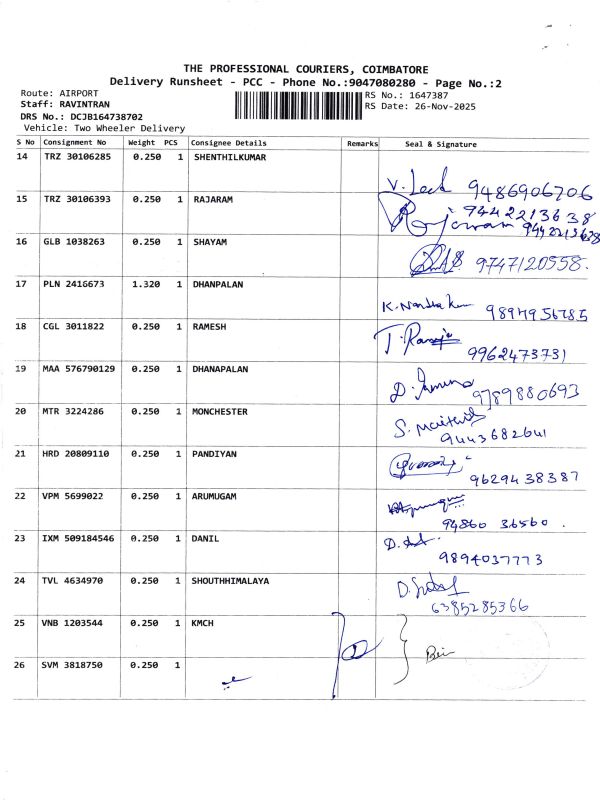 THE PROFESSIONAL COURIERS, COIMBATORE
Delivery Runsheet - PCC - Phone No.:9047080280 - Page No.:2
Route: AIRPORT
Staff: RAVINTRAN
DRS No.: DCJB164738702
Vehicle: Two Wheeler Delivery
RS No.: 1647387
RS Date: 26-Nov-2025
S No Consignment No Weight PCS Consignee Details Remarks Seal & Signature
14 TRZ 30106285 0.250 1 SHENTHILKUMAR
9486906706
15 TRZ 30106393 0.250 1 RAJARAM
9442213638
9442213638
16 GLB 1038263 0.250 1 SHAYAM
9747120558.
17 PLN 2416673 1.320 1 DHANPALAN
18 CGL 3011822 0.250 1 RAMESH
9962473731
19 MAA 576790129 0.250 1 DHANAPALAN
9789880693
20 MTR 3224286 0.250 1 MONCHESTER
9443682641
21 HRD 20809110 0.250 1 PANDIYAN
9629438387
22 VPM 5699022 0.250 1 ARUMUGAM
94860 36560 .
23 IXM 509184546 0.250 1 DANIL
9894037773
24 TVL 4634970 0.250 1 SHOUTHHIMALAYA
6385285366
25 VNB 1203544 0.250 1 KMCH
26 SVM 3818750 0.250 1